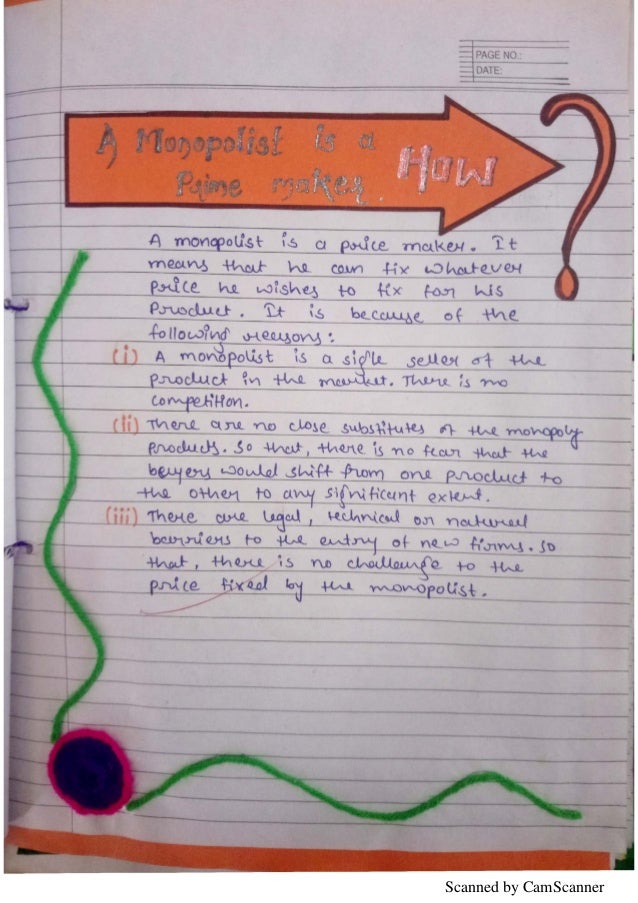 PAGE NO.:
DATE:
A Monopolist is a
Prime maker.
HOW
?
A monopolist is a price maker. It
means that he can fix whatever
price he wishes to fix for his
Product. It is because of the
following reasons:
(i) A monopolist is a sigle seller of the
product in the market. There is no
competition.
(ii) There are no close substitutes of the monopoly
products. So that, there is no fear that the
buyers would shift from one product to
the other to any significant extent.
(iii) There are legal, technical or natural
barriers to the entry of new firms. so
that, there is no challange to the
price fixed by the monopolist.
Scanned by CamScanner